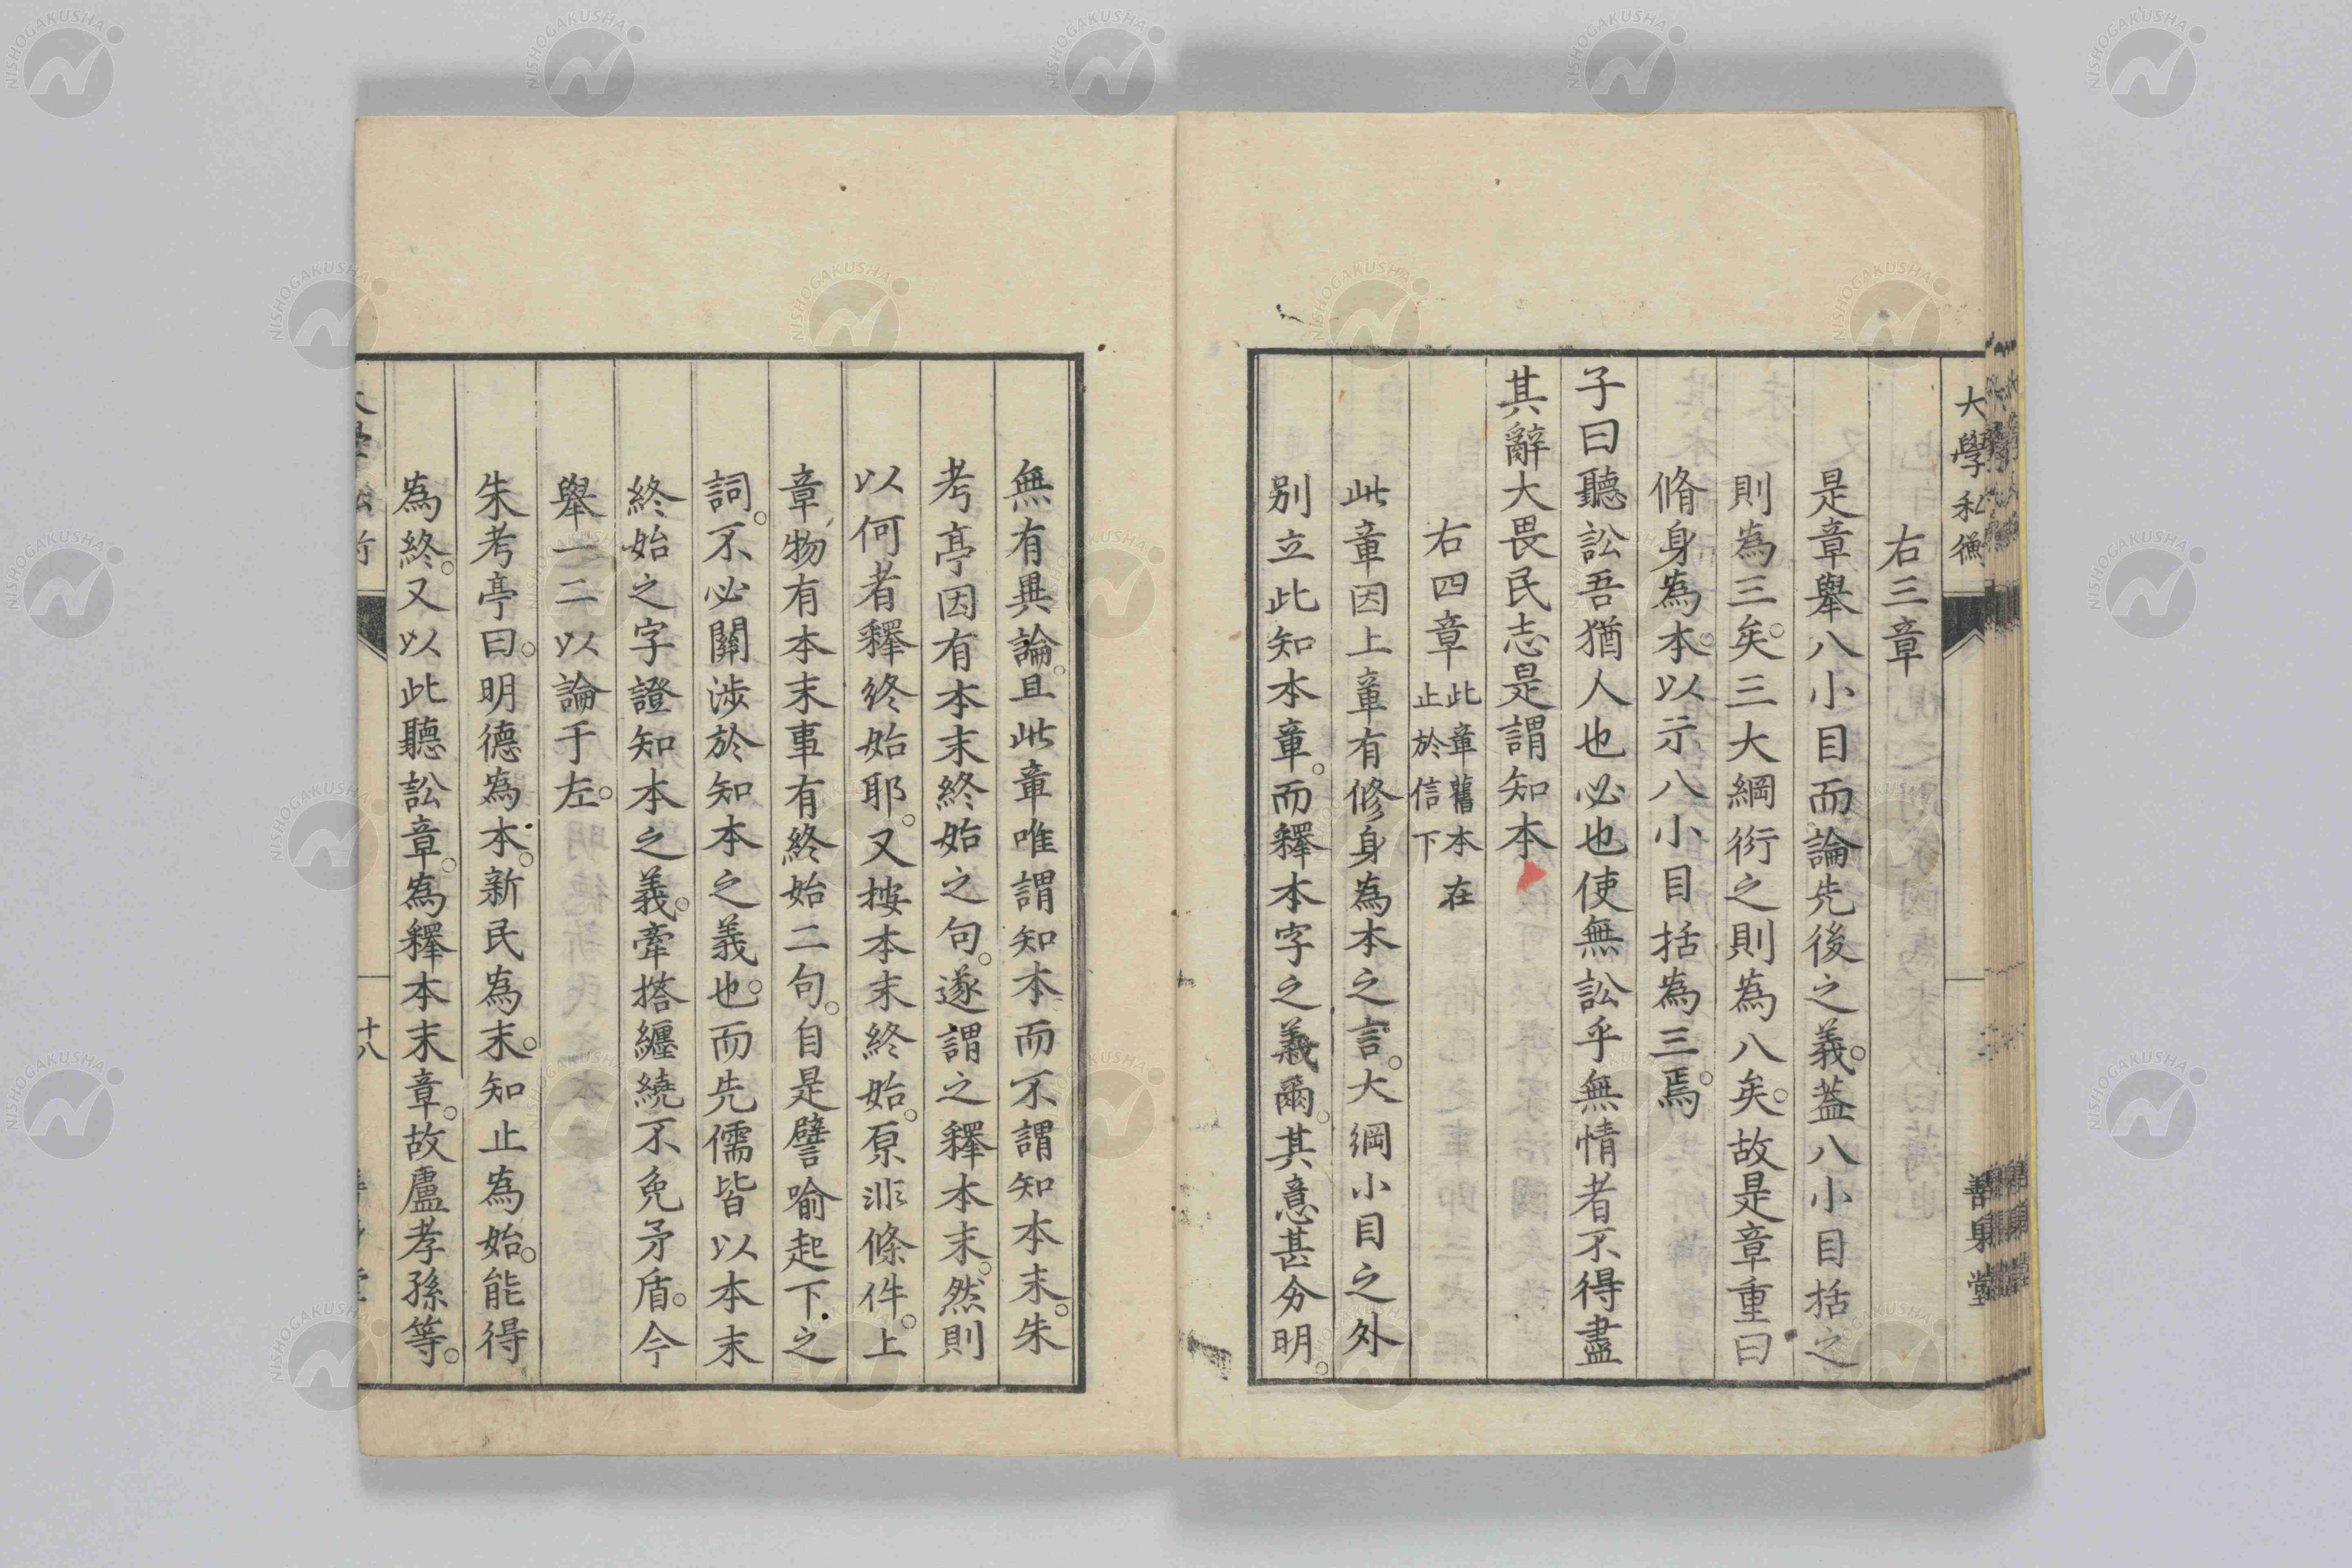 大學私衡
善身堂
右三章
是章舉八小目而論先後之義。蓋八小目括之
則為三矣。三大綱衍之則為八矣。故是章重曰
脩身為本。以示八小目括為三焉。
子曰聽訟吾猶人也必也使無訟乎無情者不得盡
其辭大畏民志是謂知本
右四章 此章舊本在
止於信下
此章因上章有修身為本之言。大綱小目之外
别立此知本章。而釋本字之義爾。其意甚分明。
無有異論。且此章唯謂知本而不謂知本末。朱
考亭因有本末終始之句。遂謂之釋本末。然則
以何者釋終始耶。又按本末終始。原非條件。上
章物有本末事有終始二句。自是譬喻起下之
詞。不必關涉於知本之義也。而先儒皆以本末
終始之字證知本之義。牽撘纏繞不免矛盾。今
舉一二以論于左。
朱考亭曰。明德為本。新民為末。知止為始。能得
為終。又以此聽訟章。為釋本末章。故盧孝孫等。
十八
NISHOGAKUSHA